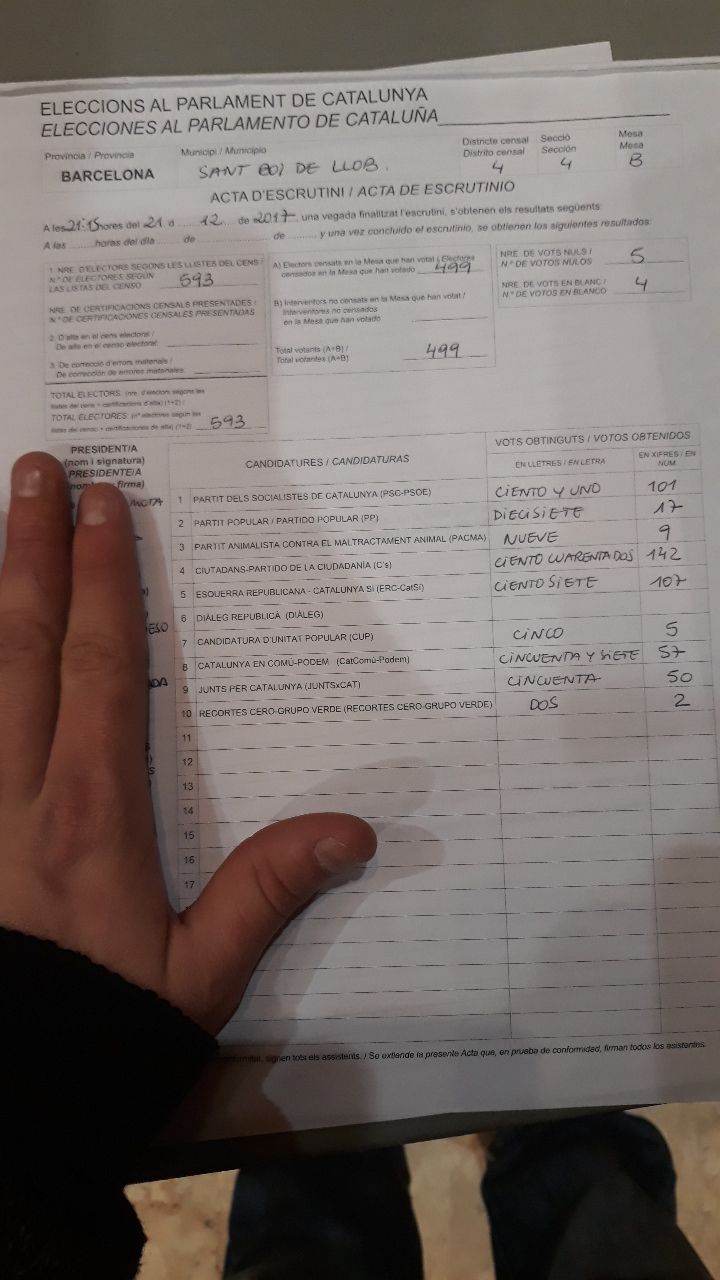 ELECCIONS AL PARLAMENT DE CATALUNYA
ELECCIONES AL PARLAMENTO DE CATALUÑA
Provincia / Provincia
BARCELONA
Municipi / Municipio
SANT BOI DE LLOB.
Districte censal
Distrito censal
4
Secció
Sección
4
Mesa
Mesa
B
ACTA D'ESCRUTINI / ACTA DE ESCRUTINIO
A les 21:15 hores del 21 d 12 de 2017, una vegada finalitzat l'escrutini, s'obtenen els resultats següents:
A las ........ horas del día ...... de ............ de ........, y una vez concluido el escrutinio, se obtienen los siguientes resultados:
1. NRE. D'ELECTORS SEGONS LES LLISTES DEL CENS /
N.º DE ELECTORES SEGÚN
LAS LISTAS DEL CENSO 593
NRE. DE CERTIFICACIONS CENSALS PRESENTADES /
N.º DE CERTIFICACIONES CENSALES PRESENTADAS
2. D'alta en el cens electoral /
De alta en el censo electoral:
3. De correcció d'errors materials /
De corrección de errores materiales:
TOTAL ELECTORS: (nre. d'electors segons les
llistes del cens + certificacions d'alta) (1+2) /
TOTAL ELECTORES: (nº electores según las
listas del censo + certificaciones de alta) (1+2) 593
A) Electors censats en la Mesa que han votat / Electores
censados en la Mesa que han votado 499
B) Interventors no censats en la Mesa que han votat /
Interventores no censados
en la Mesa que han votado
Total votants (A+B) /
Total votantes (A+B) 499
NRE. DE VOTS NULS /
N.º DE VOTOS NULOS 5
NRE. DE VOTS EN BLANC /
N.º DE VOTOS EN BLANCO 4
PRESIDENT/A
(nom i signatura)
PRESIDENTE/A
firma)
CANDIDATURES / CANDIDATURAS
VOTS OBTINGUTS / VOTOS OBTENIDOS
EN LLETRES / EN LETRA
EN XIFRES / EN NUM
1 PARTIT DELS SOCIALISTES DE CATALUNYA (PSC-PSOE) CIENTO Y UNO 101
2 PARTIT POPULAR / PARTIDO POPULAR (PP) DIECISIETE 17
3 PARTIT ANIMALISTA CONTRA EL MALTRACTAMENT ANIMAL (PACMA) NUEVE 9
4 CIUTADANS-PARTIDO DE LA CIUDADANÍA (C's) CIENTO CUARENTA DOS 142
5 ESQUERRA REPUBLICANA - CATALUNYA SÍ (ERC-CatSí) CIENTO SIETE 107
6 DIÀLEG REPUBLICÀ (DIÀLEG)
7 CANDIDATURA D'UNITAT POPULAR (CUP) CINCO 5
8 CATALUNYA EN COMÚ-PODEM (CatComú-Podem) CINCUENTA Y SIETE 57
9 JUNTS PER CATALUNYA (JUNTSxCAT) CINCUENTA 50
10 RECORTES CERO-GRUPO VERDE (RECORTES CERO-GRUPO VERDE) DOS 2
11
12
13
14
15
16
17
signen tots els assistents. / Se extiende la presente Acta que, en prueba de conformidad, firman todos los asistentes.